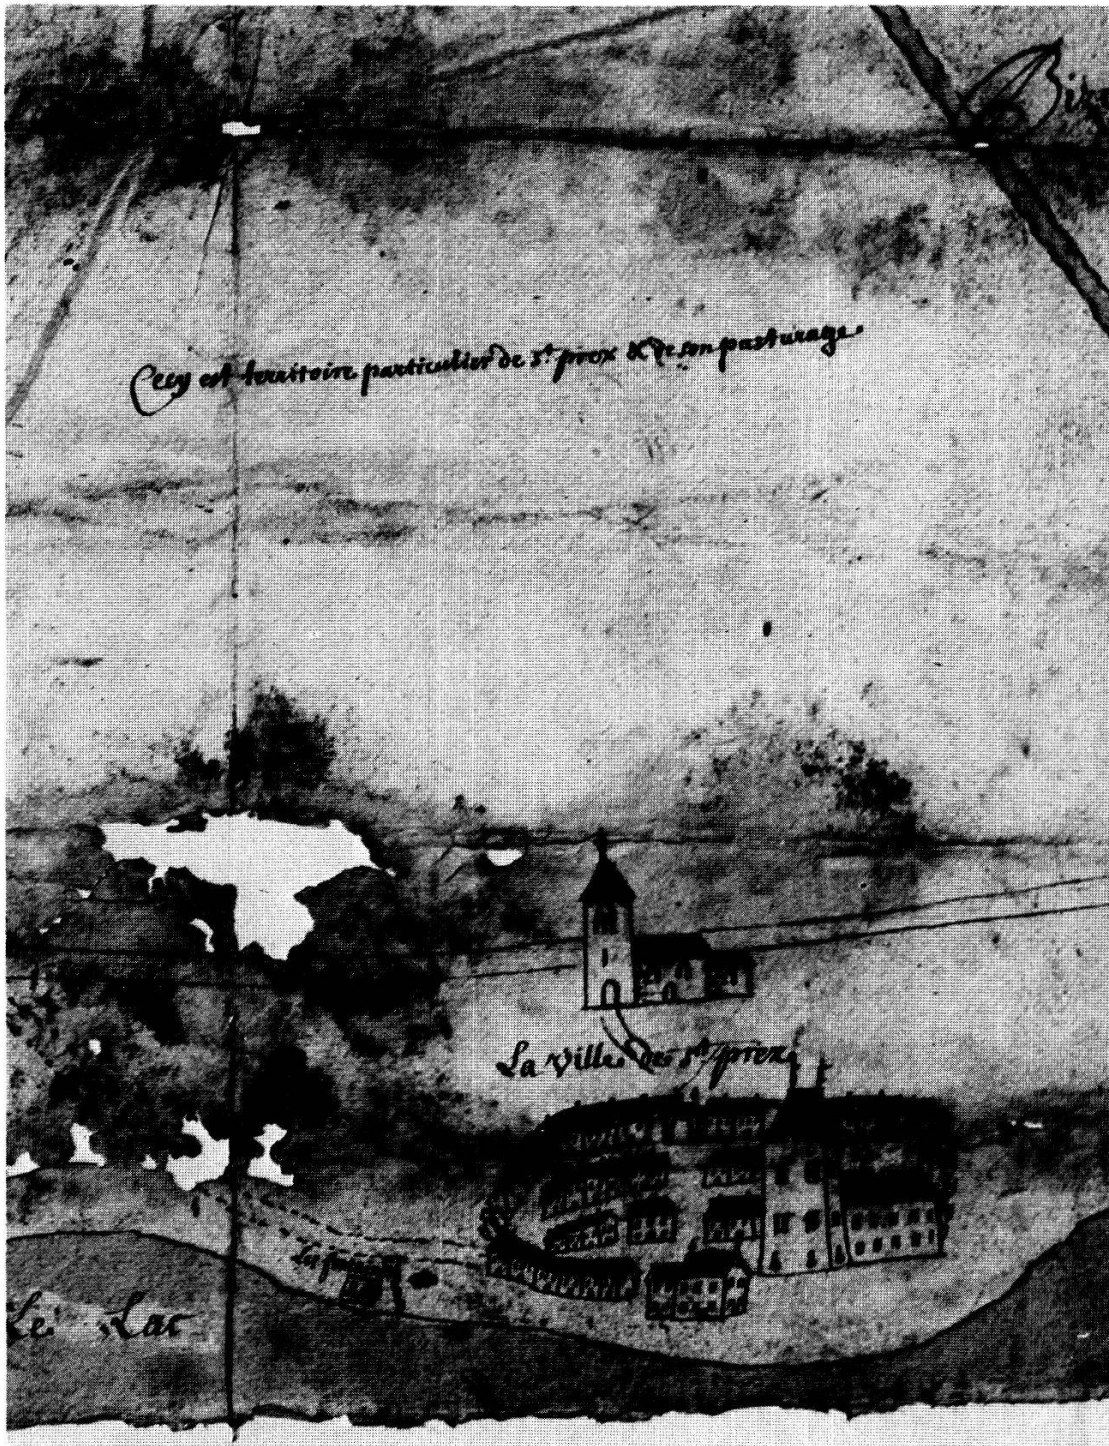 Cecy est territoire particulier de St prex & de son pasturage.
La Ville de St prex
Le Lac